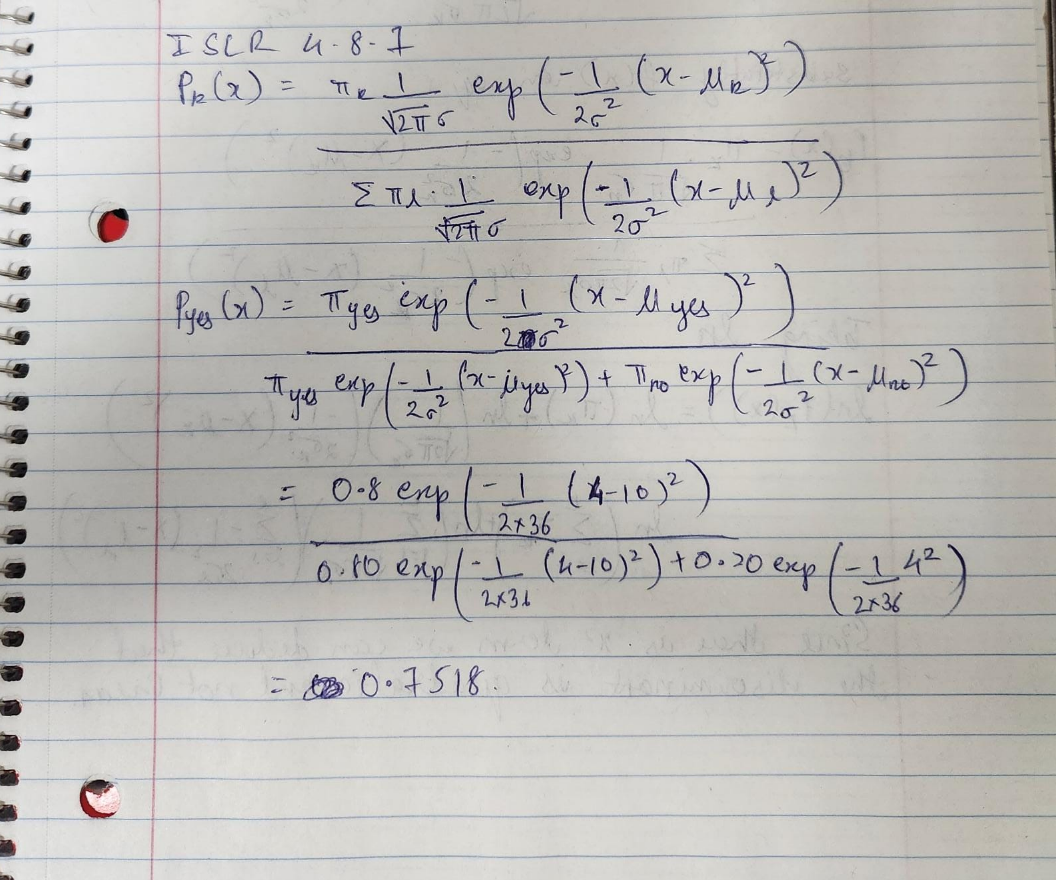 ISLR 4.8.7
Pk(x) = πk 1/√2π σ exp(-1/2σ² (x-μk)²)
Σ πl · 1/√2π σ exp(-1/2σ² (x-μl)²)
Pyes(x) = πyes exp(-1/2σ² (x-μyes)²)
πyes exp(-1/2σ² (x-μyes)²) + πno exp(-1/2σ² (x-μno)²)
= 0.8 exp(-1/2×36 (4-10)²)
0.80 exp(-1/2×36 (4-10)²) + 0.20 exp(-1/2×36 4²)
= 0.7518.